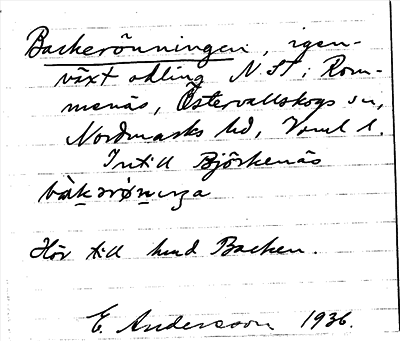 Backerönningen, igen-
växt odling N ST i Rom-
menäs, Östervallskogs sn,
Nordmarks hd, Vrml l.
Intill Björkenäs
bàkərö̀nıŋa
Hör till hmd Backen.
E. Andersson 1936.